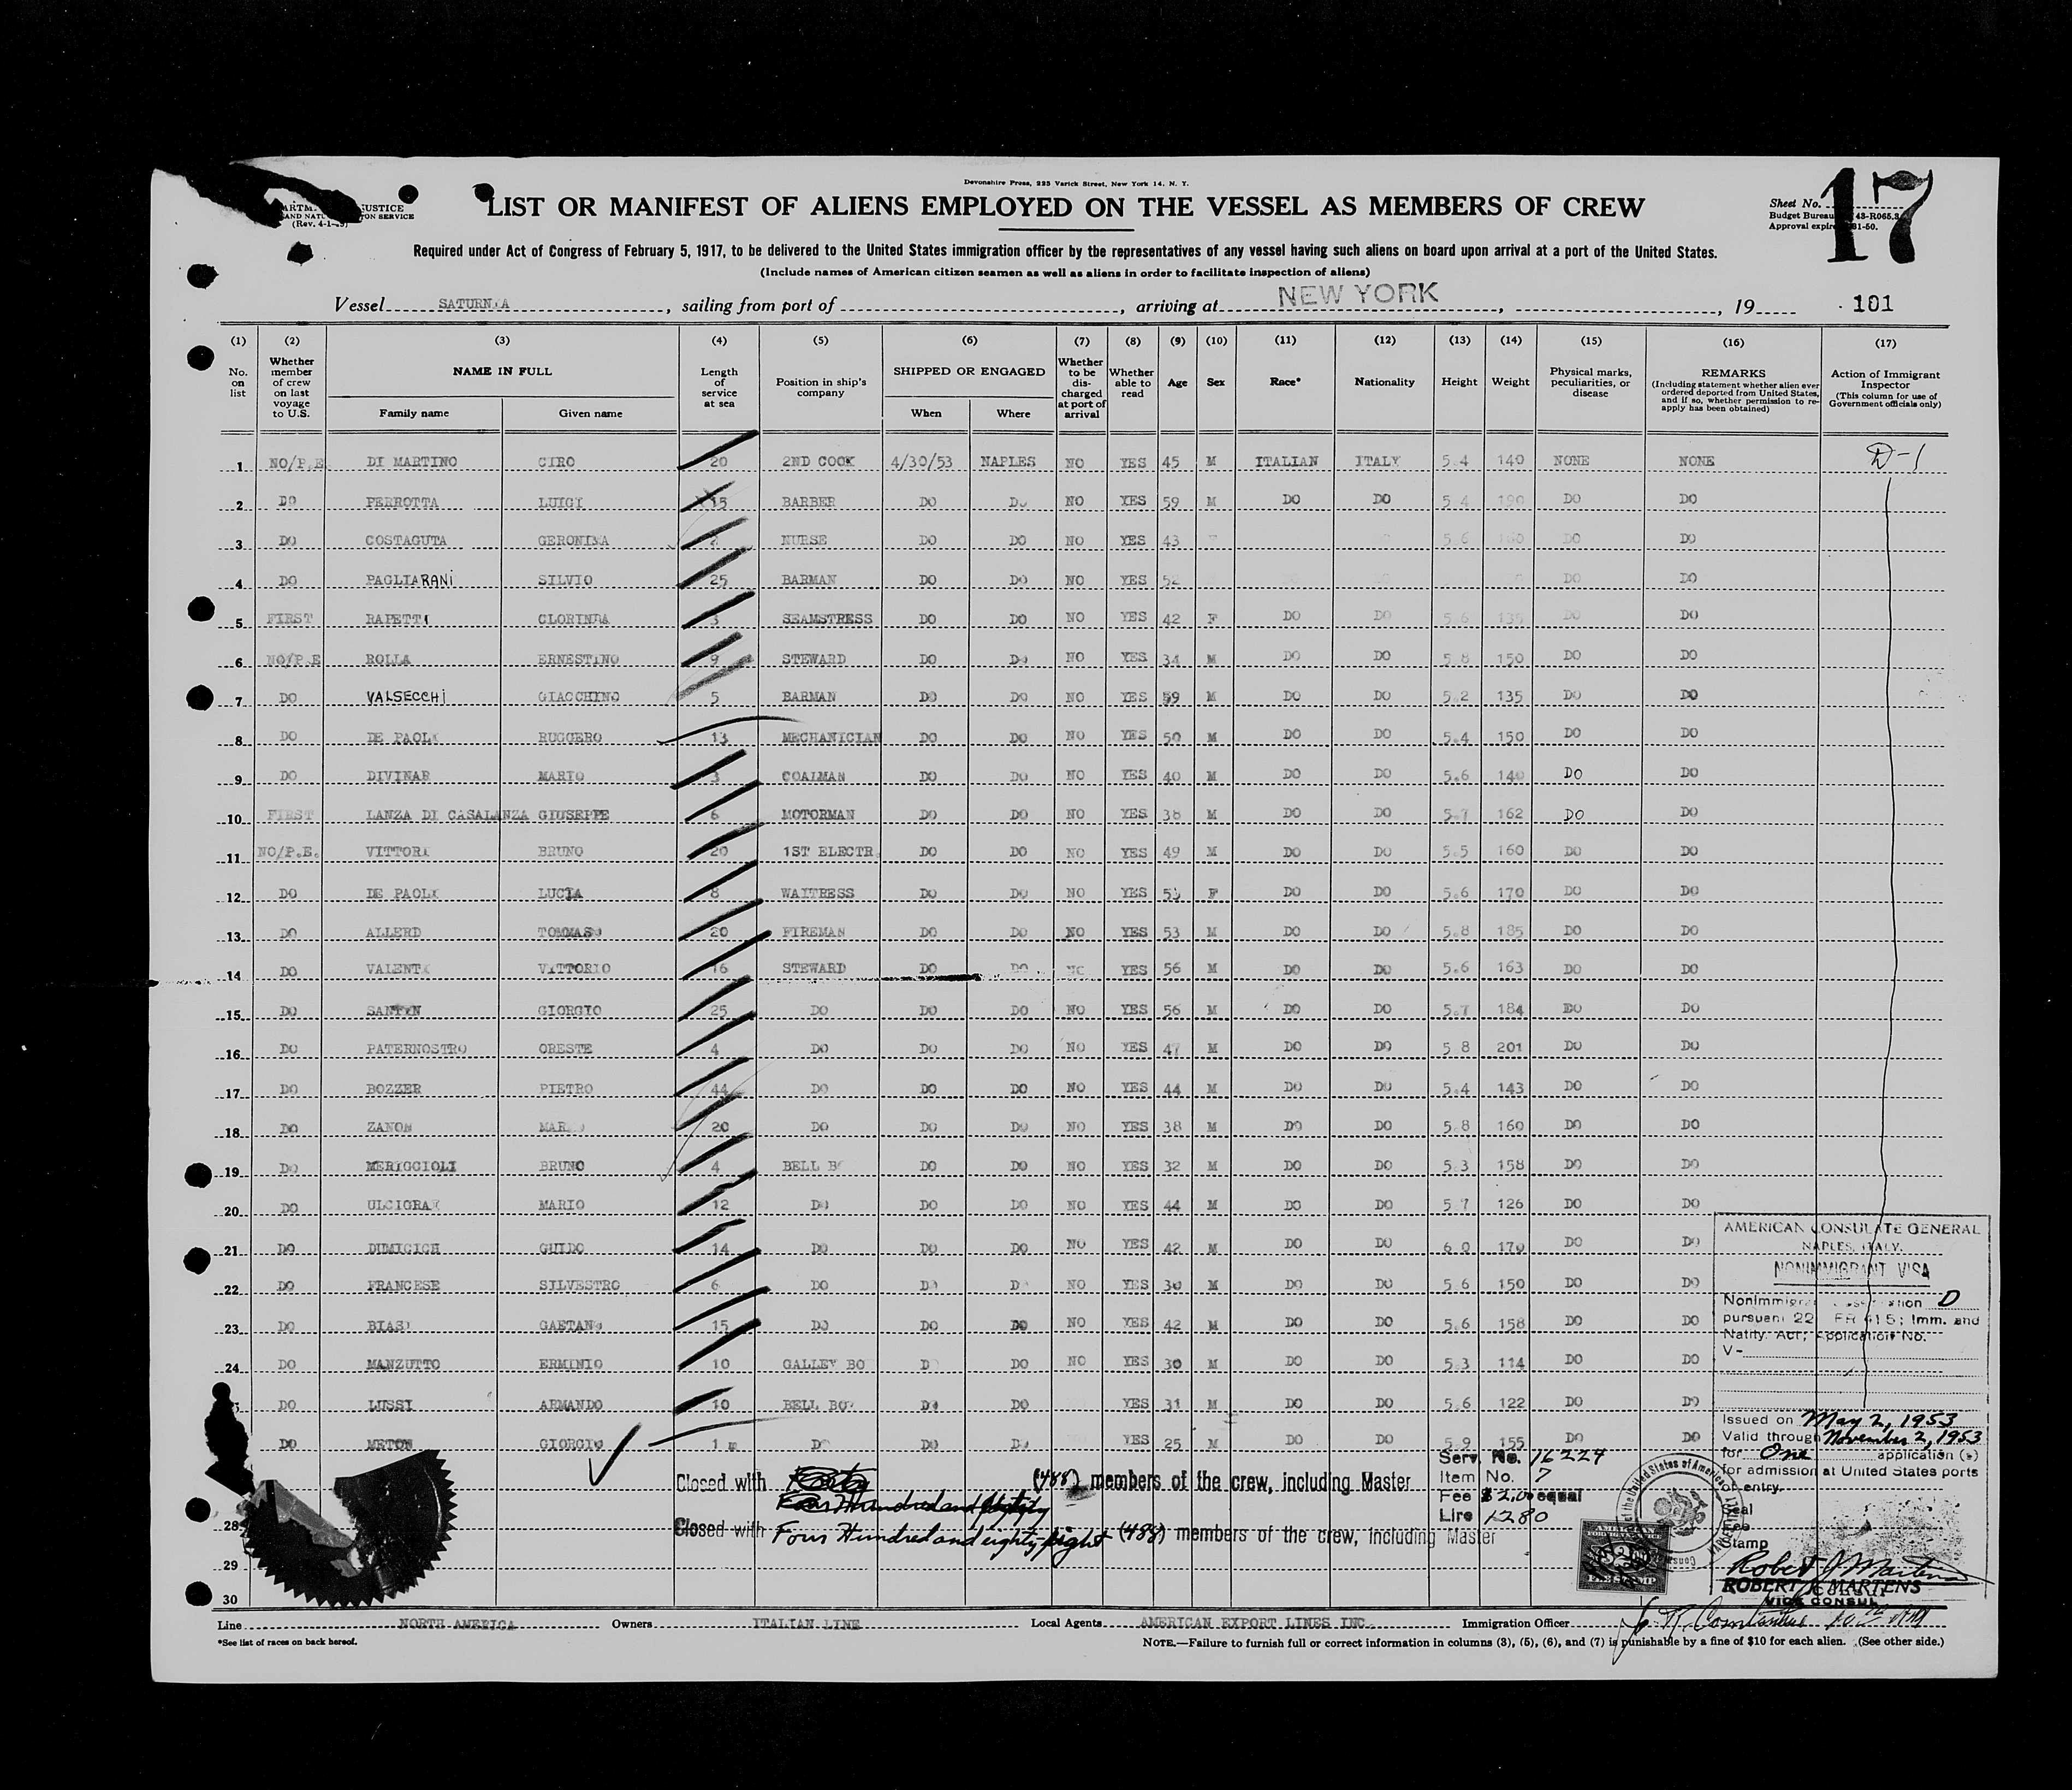 Devonshire Press, 225 Varick Street, New York 14, N. Y.
LIST OR MANIFEST OF ALIENS EMPLOYED ON THE VESSEL AS MEMBERS OF CREW
17
Sheet No.
Budget Bureau 43-R065.3
Approval expire 31-50.
JUSTICE
AND NAT ON SERVICE
(Rev. 4-1-
Required under Act of Congress of February 5, 1917, to be delivered to the United States immigration officer by the representatives of any vessel having such aliens on board upon arrival at a port of the United States.
(Include names of American citizen seamen as well as aliens in order to facilitate inspection of aliens)
Vessel SATURNIA, sailing from port of , arriving at NEW YORK, , 19 101
(1) (2) (3) (4) (5) (6) (7) (8) (9) (10) (11) (12) (13) (14) (15) (16) (17)
No. on list
Whether member of crew on last voyage to U.S.
NAME IN FULL
Family name Given name
Length of service at sea
Position in ship's company
SHIPPED OR ENGAGED
When Where
Whether to be discharged at port of arrival
Whether able to read
Age
Sex
Race*
Nationality
Height
Weight
Physical marks, peculiarities, or disease
REMARKS
(Including statement whether alien ever ordered deported from United States, and if so, whether permission to reapply has been obtained)
Action of Immigrant Inspector
(This column for use of Government officials only)
1 NO/P.E DI MARTINO CIRO 20 2ND COOK 4/30/53 NAPLES NO YES 45 M ITALIAN ITALY 5 4 140 NONE NONE D-1
2 DO PERROTTA LUIGI 15 BARBER DO DO NO YES 59 M DO DO 5 4 190 DO DO
3 DO COSTAGUTA GERONIMA NURSE DO DO NO YES 43 5 6 DO DO
4 DO PAGLIARANI SILVIO 25 BARMAN DO DO NO YES 52 DO DO
5 FIRST RAPETTI CLORINDA 3 SEAMSTRESS DO DO NO YES 42 F DO DO 5 6 135 DO DO
6 NO/P.E ROLLA ERNESTINO 9 STEWARD DO DO NO YES 34 M DO DO 5 8 150 DO DO
7 DO VALSECCHI GIACCHINO 5 BARMAN DO DO NO YES 59 M DO DO 5.2 135 DO DO
8 DO DE PAOLI RUGGERO 13 MECHANICIAN DO DO NO YES 50 M DO DO 5.4 150 DO DO
9 DO DIVINAR MARIO 3 COALMAN DO DO NO YES 40 M DO DO 5.6 140 DO DO
10 FIRST LANZA DI CASALANZA GIUSEPPE 6 MOTORMAN DO DO NO YES 38 M DO DO 5.7 162 DO DO
11 NO/P.E. VITTORI BRUNO 20 1ST ELECTR. DO DO NO YES 49 M DO DO 5.5 160 DO DO
12 DO DE PAOLI LUCIA 8 WAITRESS DO DO NO YES F DO DO 5.6 170 DO DO
13 DO ALLERD TOMMASO 20 FIREMAN DO DO NO YES 53 M DO DO 5.8 185 DO DO
14 DO VALENTI VITTORIO 16 STEWARD DO DO NO YES 56 M DO DO 5.6 163 DO DO
15 DO GIORGIO 25 DO DO DO NO YES 56 M DO DO 5.7 184 DO DO
16 DO PATERNOSTRO ORESTE 4 DO DO DO NO YES 47 M DO DO 5 8 201 DO DO
17 DO BOZZER PIETRO 44 DO DO DO NO YES 44 M DO DO 5.4 143 DO DO
18 DO ZANON MARIO 20 DO DO DO NO YES 38 M DO DO 5.8 160 DO DO
19 DO MERIGGIOLI BRUNO 4 BELL BO DO DO NO YES 32 M DO DO 5.3 158 DO DO
20 DO ULCIGRAI MARIO 12 DO DO DO NO YES 44 M DO DO 5 7 126 DO DO
21 DO DUMICICH GUIDO 14 DO DO DO NO YES 42 M DO DO 6 0 170 DO DO
22 DO FRANCESE SILVESTRO 6 DO DO DO NO YES 30 M DO DO 5 6 150 DO DO
23 DO BIASI GAETANO 15 DO DO DO NO YES 42 M DO DO 5.6 158 DO DO
24 DO MANZUTTO ERMINIO 10 GALLEY BO DO DO NO YES 30 M DO DO 5.3 114 DO DO
DO LUSSI ARMANDO 10 BELL BOY DO DO YES 31 M DO DO 5.6 122 DO DO
DO METON GIORGIO 1 m DO DO DO YES 25 M DO DO 5 9 155 DO DO
28
29
30
AMERICAN CONSULATE GENERAL
NAPLES, ITALY.
NONIMMIGRANT VISA
Nonimmigrant classification D
pursuant 22 CFR 41 5; Imm. and
Natlty. Act; Application No.
V-
Issued on May 2, 1953
Valid through November 2, 1953
for One application (s)
for admission at United States ports
of entry.
Seal
Fee
Stamp
Robert J Martens
ROBERT J. MARTENS
VICE CONSUL
Serv. No. 16224
Item No. 7
Fee $ 2.00 equal
Lire 1280
Closed with (488) members of the crew, including Master
Four Hundred and
Closed with Four Hundred and eighty-eight (488) members of the crew, including Master
Line NORTH AMERICA Owners ITALIAN LINE Local Agents AMERICAN EXPORT LINES INC. Immigration Officer
*See list of races on back hereof.
NOTE.—Failure to furnish full or correct information in columns (3), (5), (6), and (7) is punishable by a fine of $10 for each alien. (See other side.)